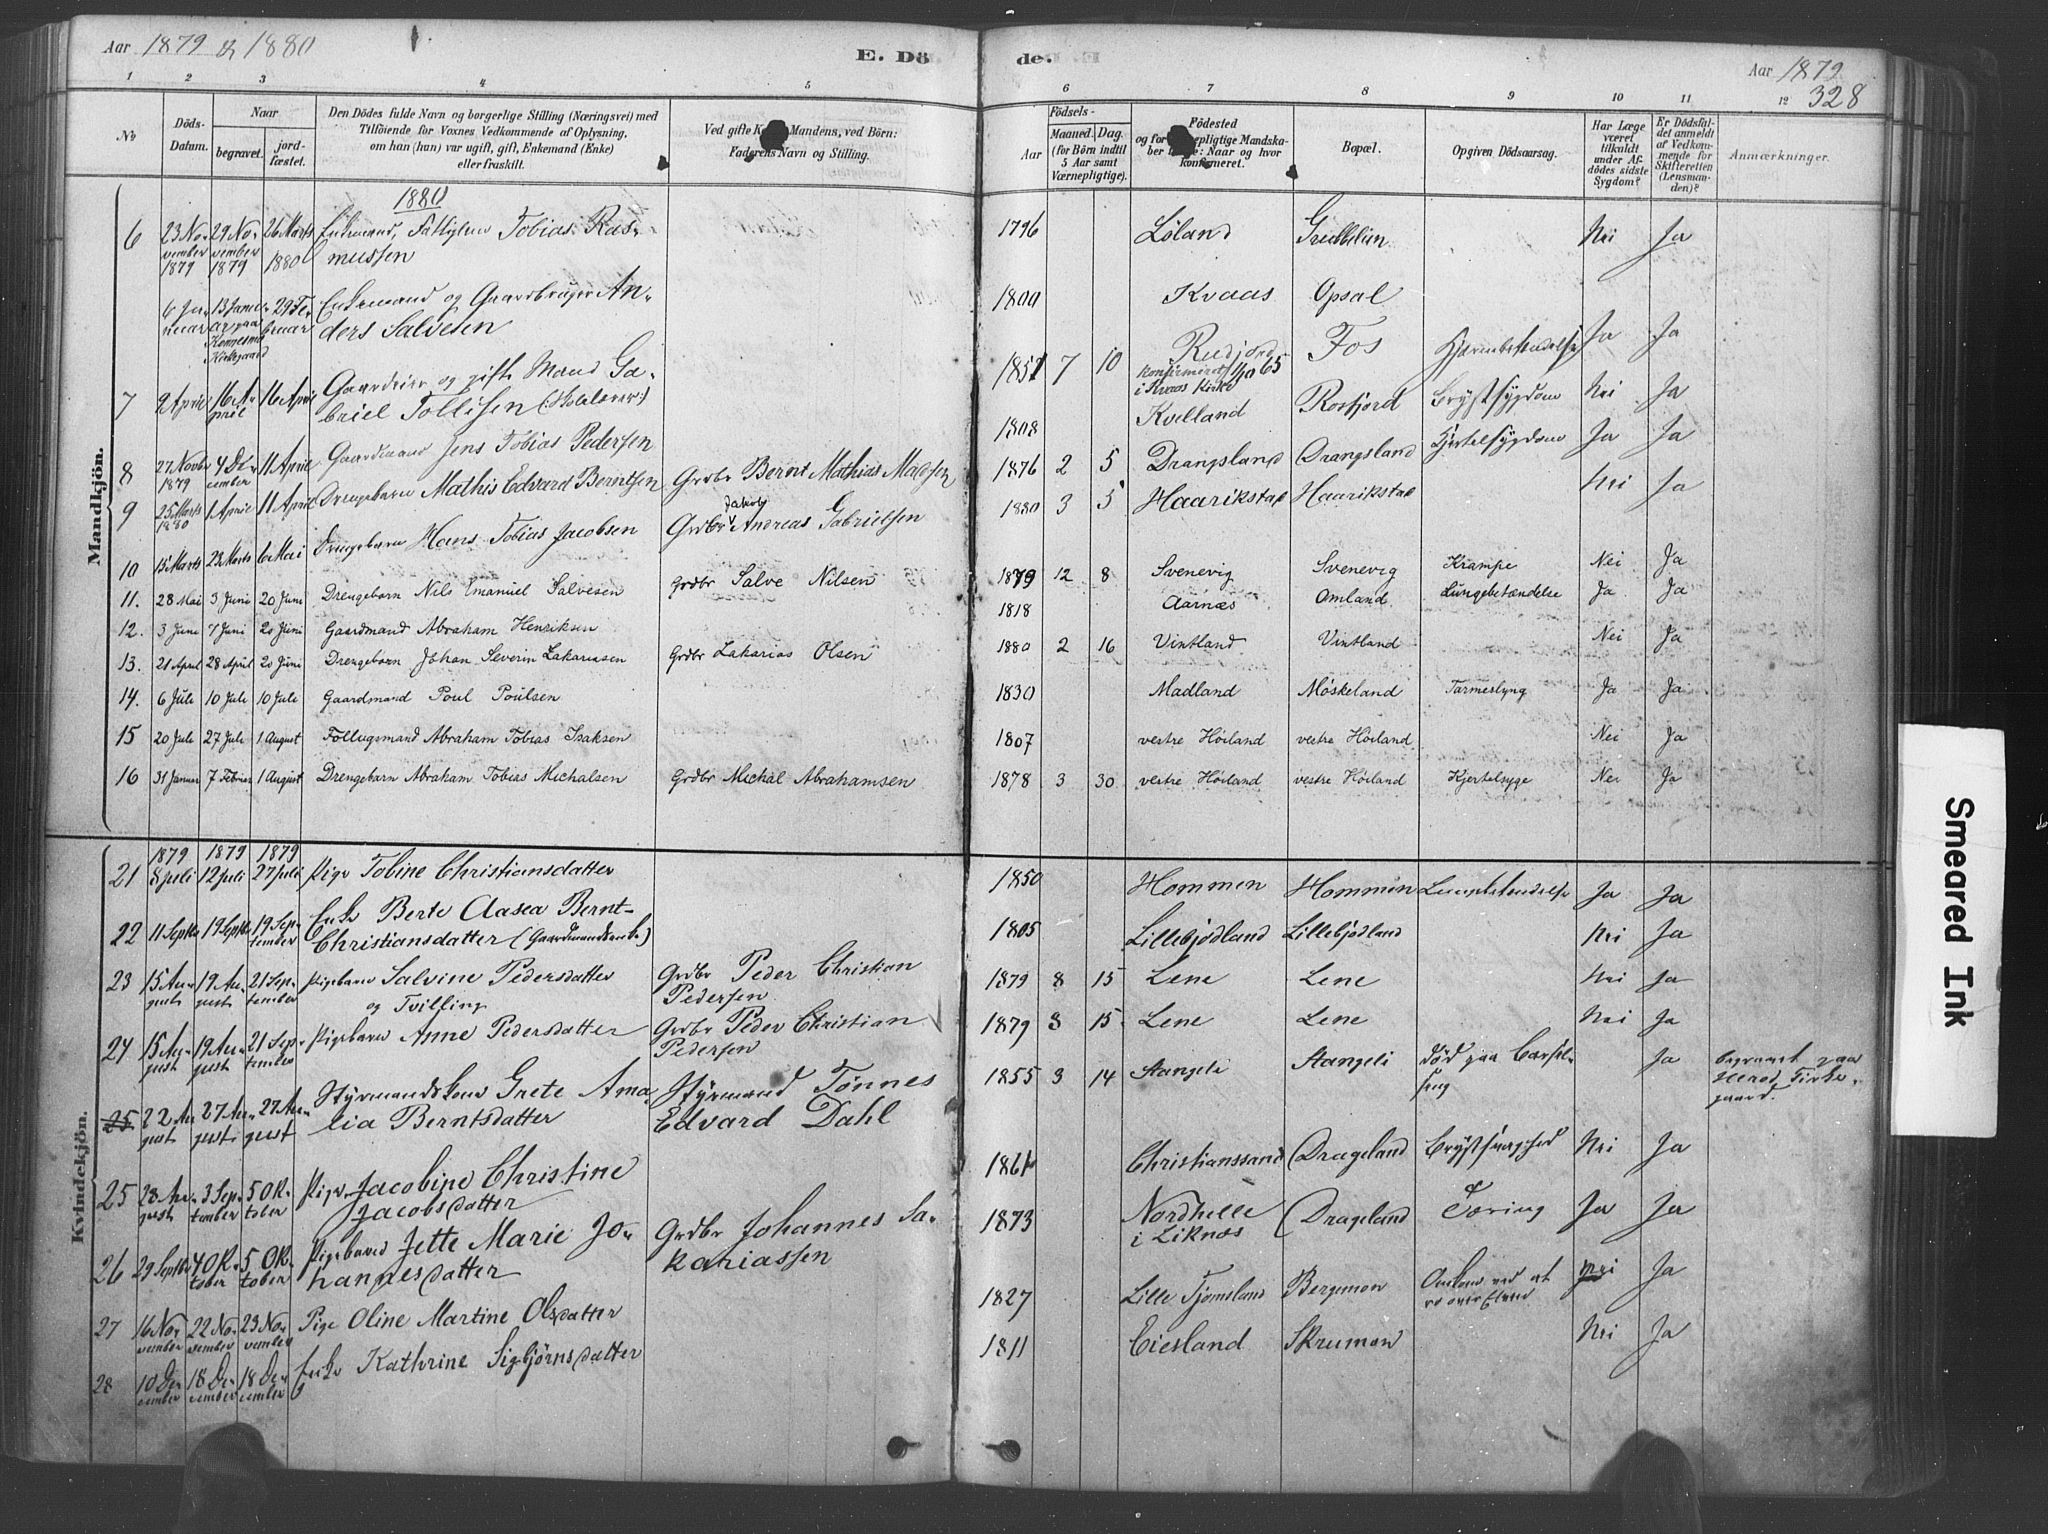 Aar 1879 & 1880
E. Dö
de.
Aar 1879
328
1 2 3 4 5 6 7 8 9 10 11 12
No
Döds-Datum.
Naar
begravet.
jord-fæstet.
Den Dödes fulde Navn og borgerlige Stilling (Næringsvei) med
Tilföiende for Voxnes Vedkommende af Oplysning,
om han (hun) var ugift, gift, Enkemand (Enke)
eller fraskilt.
Ved gifte Mandens, ved Börn:
Faderens Navn og Stilling.
Födsels-
Aar
Maaned. Dag.
(for Börn indtil
5 Aar samt
Værnepligtige).
Födested
og for
Naar og hvor
konfirmeret.
Bopæl.
Opgiven Dödsaarsag.
Har Læge
været
tilkaldt
under Af-
dödes sidste
Sygdom?
Er Dödsfal-
det anmeldt
af Vedkom-
mende for
Skifteretten
(Lensman-
den)?
Anmærkninger.
Mandkjön.
1880
6 23 November 1879 29 November 1879 26 Marts 1880 Enkemand, Tobias Rasmussen 1796 Løland Nei Ja
6 Januar 13 Januar paa Kirkegaard 29 Februar Enkemand og Gaardbruger Anders Salvesen 1800 Kvaas Opsal
7 9 April 16 April 16 April Gaardeier og gift Mand Gabriel Tollisen (Skolelærer) 1851 7 10 Rudjord konfirmeret 1/10 65 i Kvaas Kirke Fos Ja Ja
Gaardmand Jens Tobias Pedersen 1808 Kvelland Rosfjord Brystsygdom Nei Ja
8 27 Novbr 1879 4 December 11 April Drengebarn Mathis Edvard Berntsen Grdbr Bernt Mathias Madsen 1876 2 5 Drangsland Drangsland Kjertelsygdom Ja Ja
9 25 Marts 1880 1 April 11 April Drengebarn Hans Tobias Jacobsen Grdbr Jakob Andreas Gabrielsen 1880 3 5 Haarikstad Haarikstad Nei Ja
10 15 Marts 23 Marts 6 Mai
11. 28 Mai 3 Juni 20 Juni Drengebarn Nils Emanuel Salvesen Grdbr Salve Nilsen 1879 12 8 Svenevig Svenevig Krampe Nei Ja
12. 3 Juni 7 Juni 20 Juni Gaardmand Abraham Henriksen 1818 Aarnæs Omland Lungebetændelse Ja Ja
13. 21 April 28 April 20 Juni Drengebarn Johan Severin Zakariasen Grdbr Zakarias Olsen 1880 2 16 Vintland Vintland Nei Ja
14. 6 Juli 10 Juli 10 Juli Gaardmand Poul Poulsen 1830 Madland Møskeland Tarmeslyng Ja Ja
15 20 Juli 27 Juli 1 August Follugsmand Abraham Tobias Isaksen 1807 vestre Høiland vestre Høiland Nei Ja
16 31 Januar 7 Februar 1 August Drengebarn Abraham Tobias Michalsen Grdbr Michal Abrahamsen 1878 3 30 vestre Høiland vestre Høiland Kjertelsyge Nei Ja
Kvindekjön.
1879 1879 1879
21 8 juli 12 juli 27 juli Pige Tobine Christiansdatter 1850 Hommen Hommen Ja Ja
22 11 Septbr 19 Septbr 19 September Enke Berte Aasea Bernt-
Christiansdatter (Gaardmandsenke) 1805 Lillebjødland Lillebjødland Nei Ja
23 15 August 19 August 21 September Pigebarn Salvine Pedersdatter
og Tvilling
Grdbr Peder Christian Pedersen 1879 8 15 Lene Lene Nei Ja
24 15 August 19 August 21 September Pigebarn Anne Pedersdatter Grdbr Peder Christian Pedersen 1879 8 15 Lene Lene Nei Ja
25 22 August 27 August 27 August Styrmandskone Grete Amalia Berntsdatter Styrmand Tønnes Edvard Dahl 1855 3 14 Stangeli Stangeli død paa Barselseng Ja begravet paa Herad Kirkegaard.
25 28 August 3 September 5 Oktober Pige Jacobine Christine Jacobsdatter 1861 Christianssand Drageland Nei Ja
26 29 Septbr 4 Oktober 5 Oktober Pigebarn Jette Marie Johannesdatter Grdbr Johannes Sakariassen 1873 Nordhelle i Liknæs Drageland Tæring Ja Ja
27 16 November 22 November 23 November Pige Oline Martine Olsdatter 1827 Lille Tjomsland Bergemon Omkom ved at ro over Elven Nei Ja
28 10 December 18 December 18 December Enke Kathrine Sigbjørnsdatter 1811 Eiesland Skrumon Nei Ja
Smeared Ink